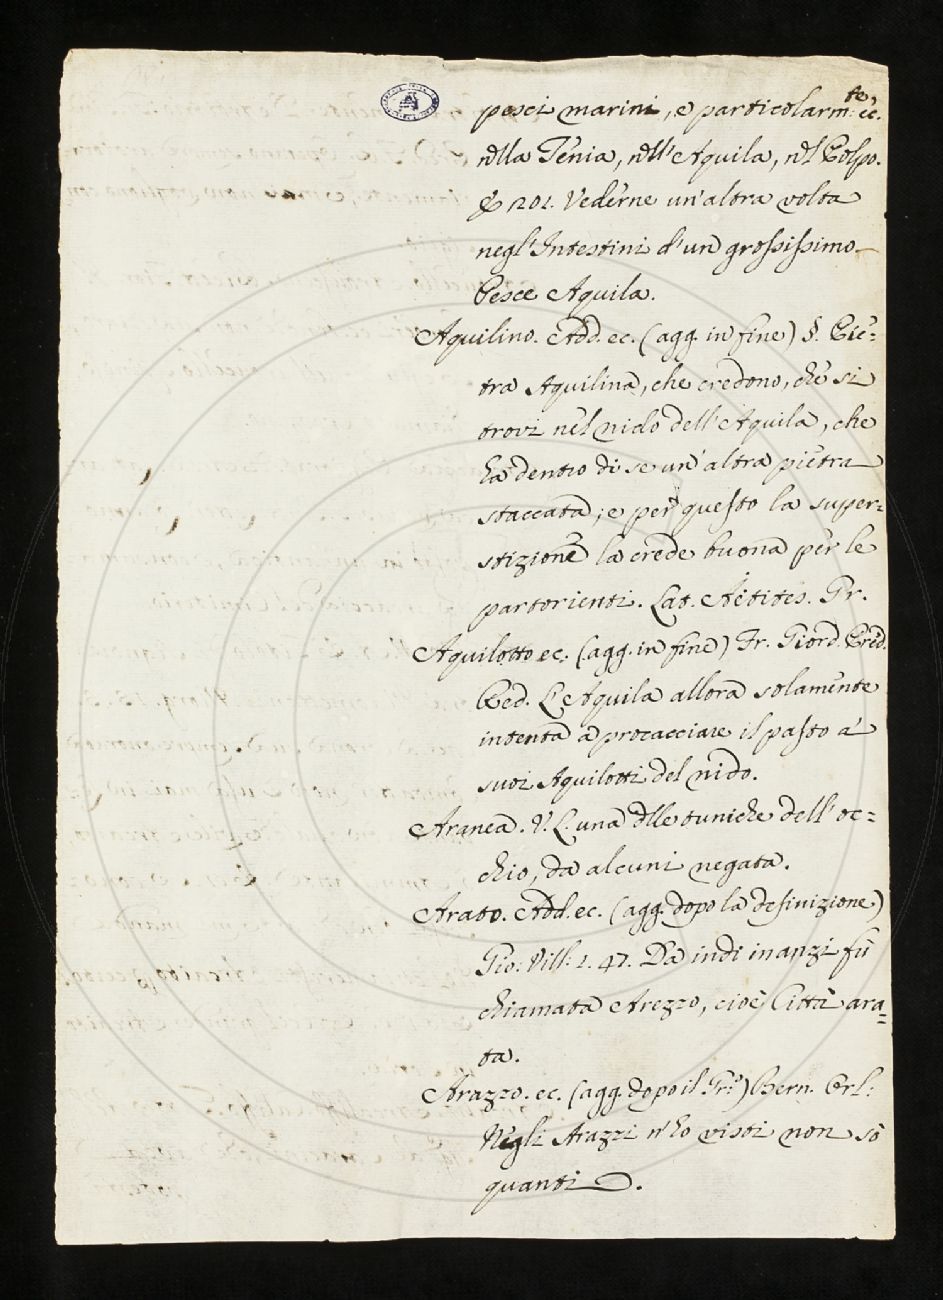 pesci marini, e particolarm.te, ec.
nella Tenia, nell'Aquila, nel Colpo.
E 201. Vederne un'altra volta
negl'Intestini d'un grossissimo
Pesce Aquila.
Aquilino. Add. ec. (agg. in fine) §. Pie=
tra Aquilina, che credono, che si
trovi nel nido dell'Aquila, che
ha dentro di se un'altra pietra
staccata; e per questo la super=
stizione la crede buona per le
partorienti. Lat. Aëtites. Gr.
Aquilotto ec. (agg. in fine) Fr. Giord. Pred.
Red. L'Aquila allora solamente
intenta a procacciare il pasto a'
suoi Aquilotti del nido.
Aranea. V. L. una delle tuniche dell'oc=
chio, da alcuni negata.
Arato. Add. ec. (agg. dopo la definizione)
Gio: Vill: 1. 47. Da indi inanzi fù
chiamata Arezzo, cioè Città ara=
ta.
Arazzo. ec. (agg. dopo il Gr.º) Bern. Orl:
Negli Arazzi n'ho visti non sò
quanti.